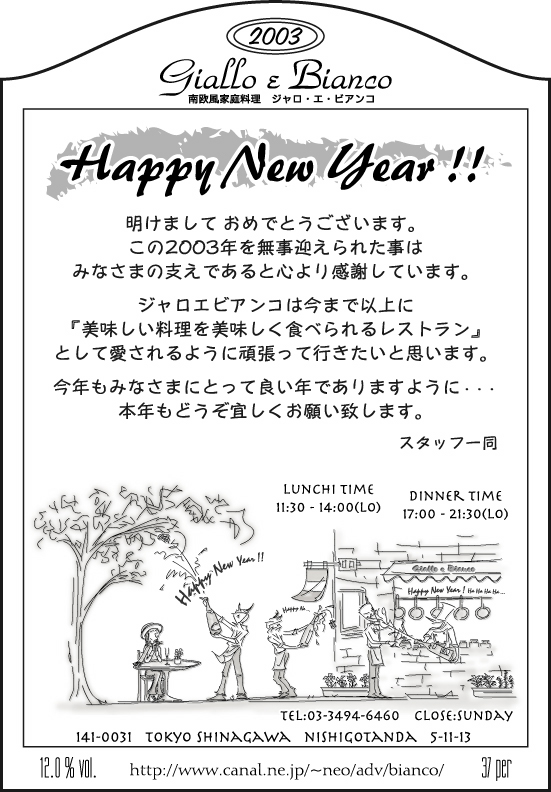 2003
Giallo e Bianco
南欧風家庭料理　ジャロ・エ・ビアンコ
Happy New Year !!
明けまして おめでとうございます。
この2003年を無事迎えられた事は
みなさまの支えであると心より感謝しています。
ジャロエビアンコは今まで以上に
『美味しい料理を美味しく食べられるレストラン』
として愛されるように頑張って行きたいと思います。
今年もみなさまにとって良い年でありますように・・・
本年もどうぞ宜しくお願い致します。
スタッフ一同
LUNCHI TIME
11:30 - 14:00(LO)
DINNER TIME
17:00 - 21:30(LO)
Happy New Year !!
Giallo e Bianco
Happy New Year ! Ha Ha Ha Ha...
TEL:03-3494-6460　CLOSE:SUNDAY
141-0031　TOKYO SHINAGAWA　NISHIGOTANDA　5-11-13
12.0 % vol.
http://www.canal.ne.jp/~neo/adv/bianco/
37 per